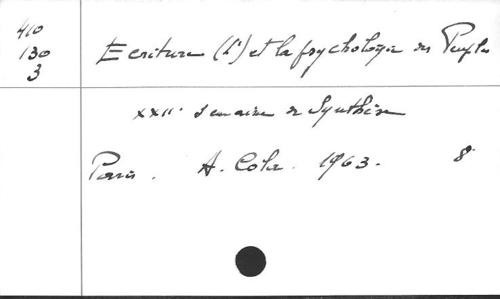 410
130
3
Ecriture (L') et la psychologie des Peuples
XXIIe Semaine de Synthèse
Paris. A. Colin. 1963. 8°